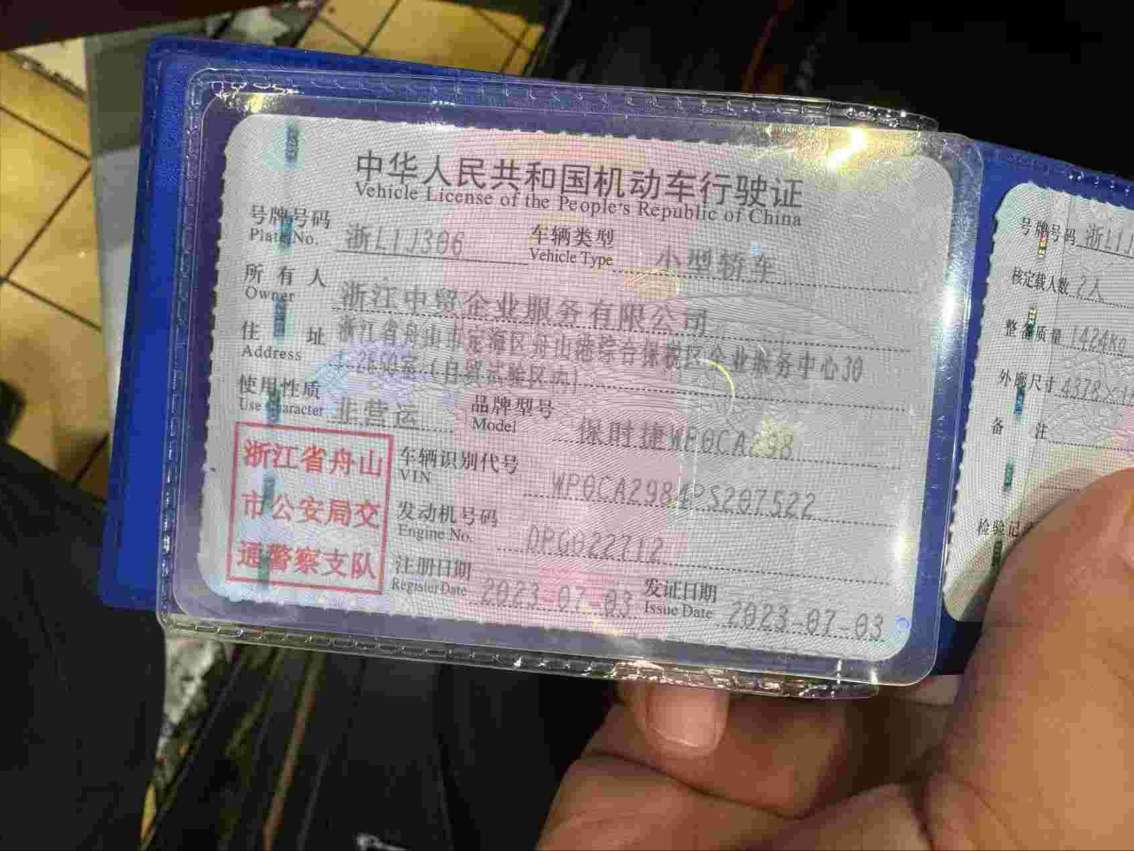 中华人民共和国机动车行驶证
Vehicle License of the People's Republic of China
号牌号码 浙L1J306 车辆类型 小型轿车
Plate No. Vehicle Type
所有人 浙江中贸企业服务有限公司
Owner
住址 浙江省舟山市定海区舟山港综合保税区企业服务中心30
Address 1-2650室(自贸试验区内)
使用性质 非营运 品牌型号 保时捷WP0CA298
Use Character Model
浙江省舟山
市公安局交
通警察支队
车辆识别代号 WP0CA2984PS207522
VIN
发动机号码 DPG022712
Engine No.
注册日期 2023-07-03 发证日期 2023-07-03
Register Date Issue Date
号牌号码 浙L1J
核定载人数 2人
整备质量 1424kg
外廓尺寸 4378×1
备注
检验记